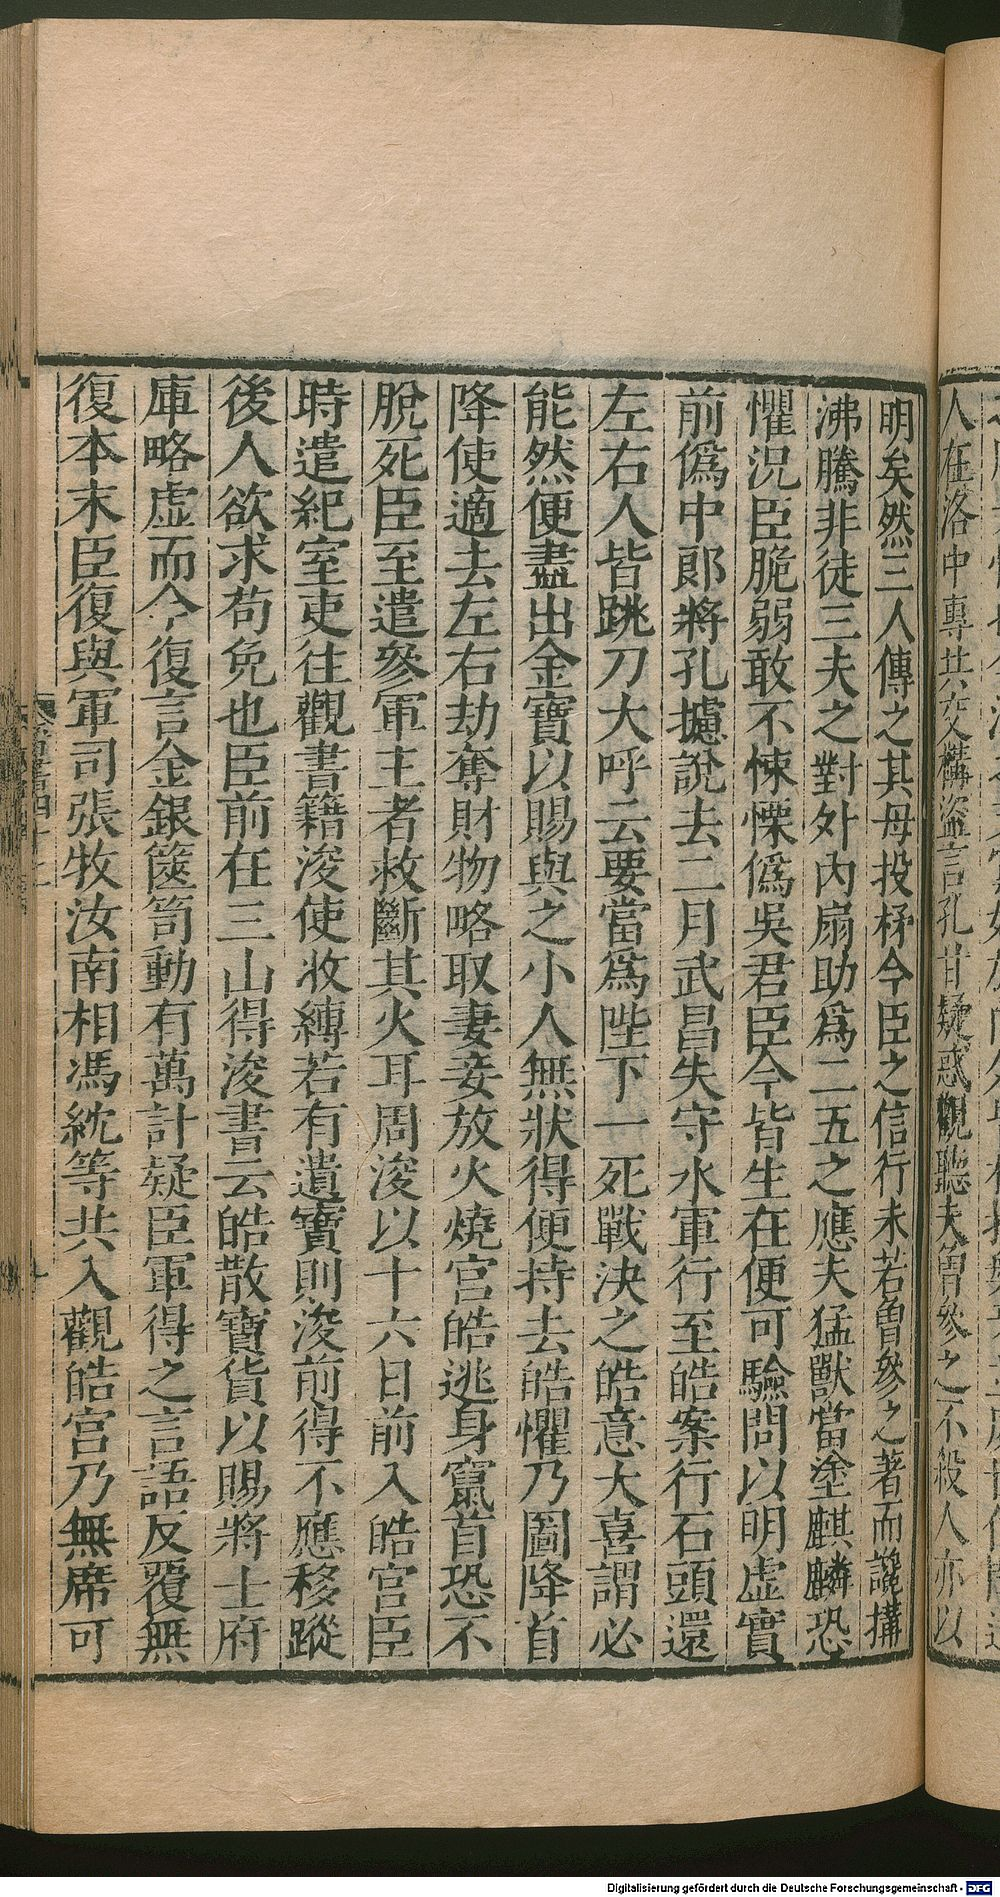 人在洛中專共交構盜言孔甘疑惑觀聽夫曾參之不殺人亦以
明矣然三人傳之其母投杼今臣之信行未若曾參之著而讒搆
沸騰非徒三夫之對外內扇助為二五之應夫猛獸當塗麒麟恐
懼況臣脆弱敢不悚慄偽吳君臣今皆生在便可驗問以明虛實
前偽中郎將孔攄說去二月武昌失守水軍行至皓案行石頭還
左右人皆跳刀大呼云要當為陛下一死戰決之皓意大喜謂必
能然便盡出金寶以賜與之小人無狀得便持去皓懼乃圖降首
降使適去左右劫奪財物略取妻妾放火燒宮皓逃身竄首恐不
脫死臣至遣參軍主者救斷其火耳周浚以十六日前入皓宮臣
時遣紀室吏往觀書籍浚使收縛若有遺寶則浚前得不應移蹤
後人欲求苟免也臣前在三山得浚書云皓散寶貨以賜將士府
庫略虛而今復言金銀篋笥動有萬計疑臣軍得之言語反覆無
復本末臣復與軍司張牧汝南相馮紞等共入觀皓宮乃無席可
Digitalisierung gefördert durch die Deutsche Forschungsgemeinschaft - DFG